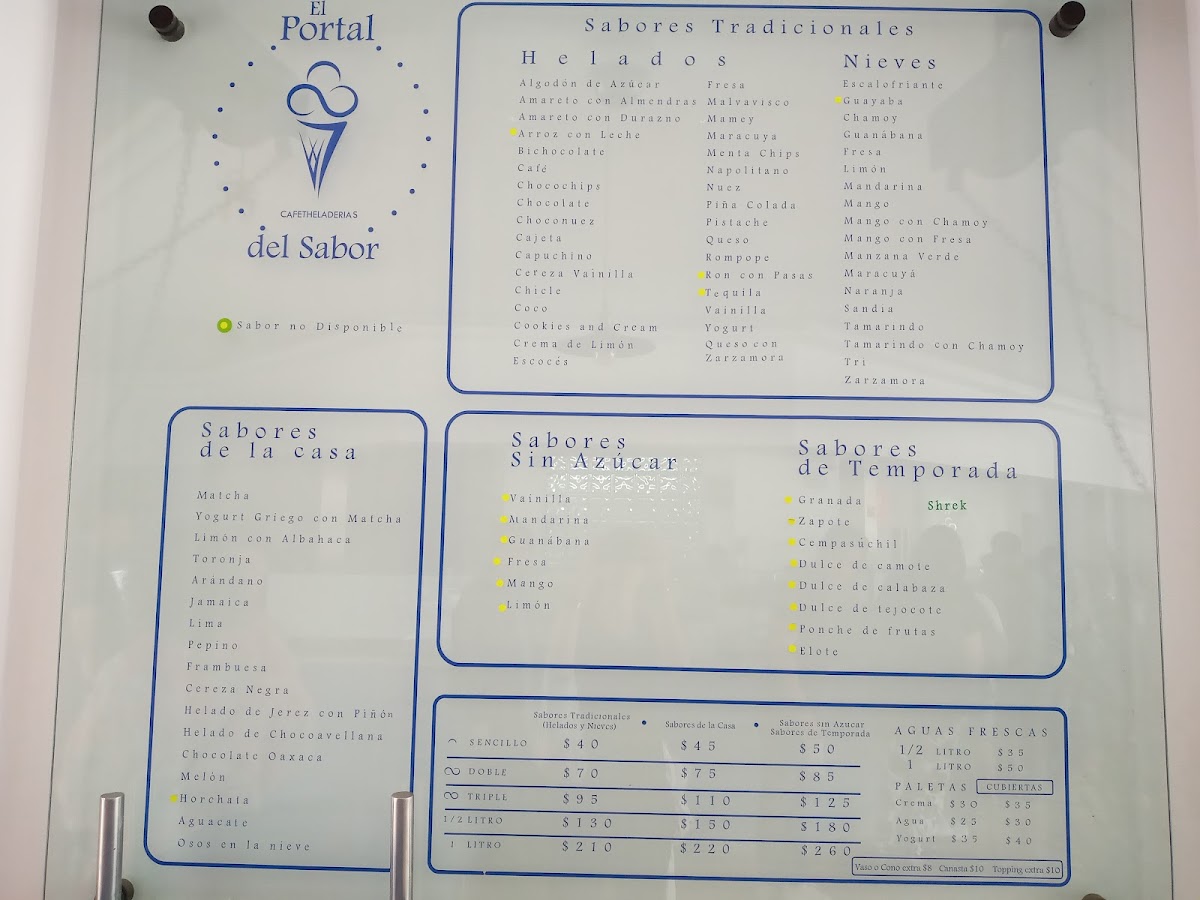 El
Portal
CAFETHELADERIAS
del Sabor
Sabor no Disponible
Sabores Tradicionales
Helados
Algodón de Azúcar
Amareto con Almendras
Amareto con Durazno
Arroz con Leche
Bichocolate
Café
Chocochips
Chocolate
Choconuez
Cajeta
Capuchino
Cereza Vainilla
Chicle
Coco
Cookies and Cream
Crema de Limón
Escocés
Fresa
Malvavisco
Mamey
Maracuya
Menta Chips
Napolitano
Nuez
Piña Colada
Pistache
Queso
Rompope
Ron con Pasas
Tequila
Vainilla
Yogurt
Queso con
Zarzamora
Nieves
Escalofriante
Guayaba
Chamoy
Guanábana
Fresa
Limón
Mandarina
Mango
Mango con Chamoy
Mango con Fresa
Manzana Verde
Maracuyá
Naranja
Sandia
Tamarindo
Tamarindo con Chamoy
Tri
Zarzamora
Sabores
de la casa
Matcha
Yogurt Griego con Matcha
Limón con Albahaca
Toronja
Arándano
Jamaica
Lima
Pepino
Frambuesa
Cereza Negra
Helado de Jerez con Piñón
Helado de Chocoavellana
Chocolate Oaxaca
Melón
Horchata
Aguacate
Osos en la nieve
Sabores
Sin Azúcar
Vainilla
Mandarina
Guanábana
Fresa
Mango
Limón
Sabores
de Temporada
Granada
Zapote
Cempasúchil
Dulce de camote
Dulce de calabaza
Dulce de tejocote
Ponche de frutas
Elote
Shrek
Sabores Tradicionales
(Helados y Nieves)
Sabores de la Casa
Sabores sin Azucar
Sabores de Temporada
SENCILLO $40 $45 $50
DOBLE $70 $75 $85
TRIPLE $95 $110 $125
1/2 LITRO $130 $150 $180
1 LITRO $210 $220 $260
AGUAS FRESCAS
1/2 LITRO $35
1 LITRO $50
PALETAS CUBIERTAS
Crema $30 $35
Agua $25 $30
Yogurt $35 $40
Vaso o Cono extra $8 Canasta $10 Topping extra $10